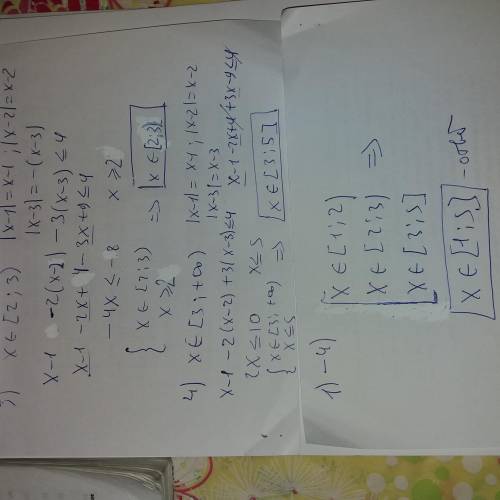 3) x ∈ [2; 3) |x-1|=x-1; |x-2|=x-2
|x-3|=-(x-3)
x-1 -2(x-2) -3(x-3) ≤ 4
x-1 -2x+4 -3x+9 ≤ 4
-4x ≤ -8 x ≥ 2
{ x ∈ [2; 3)
x ≥ 2 => x ∈ [2; 3)
4) x ∈ [3; +∞) |x-1|=x-1; |x-2|=x-2
|x-3|=x-3
x-1 -2(x-2)+3(x-3) ≤ 4 x-1-2x+4+3x-9 ≤ 4
2x ≤ 10 x ≤ 5
{ x ∈ [3; +∞)
x ≤ 5 => x ∈ [3; 5]
1) - 4)
x ∈ [1; 2)
x ∈ [2; 3) =>
x ∈ [3; 5]
x ∈ [1; 5] - ответ